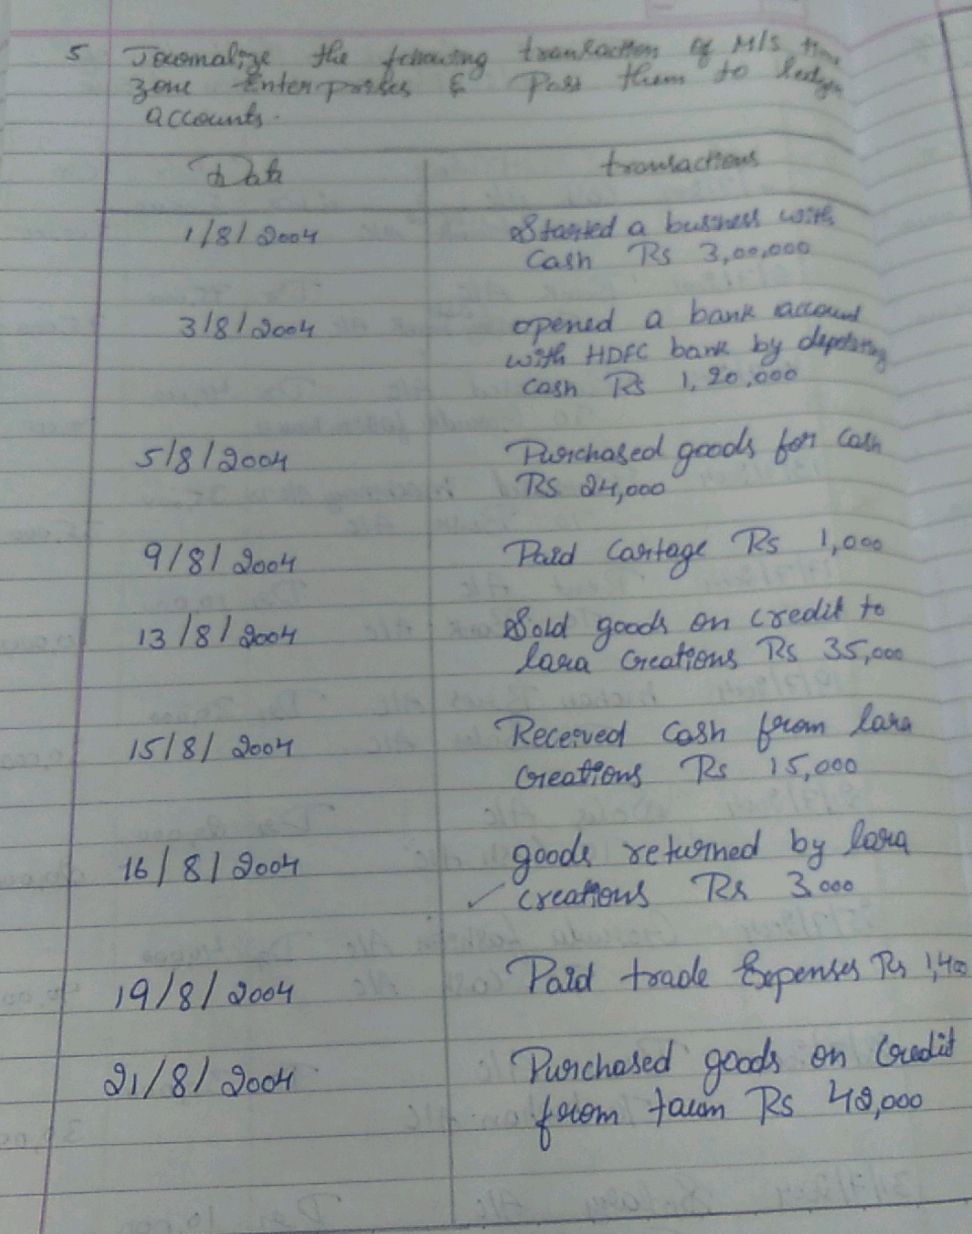 5 Journalize the following transaction of M/S time
zone Enterprises & Pass them to ledger
accounts.
Date transactions
1/8/2004 Started a business with
Cash Rs 3,00,000
3/8/2004 opened a bank account
with HDFC bank by depositing
Cash Rs 1,20,000
5/8/2004 Purchased goods for Cash
Rs 24,000
9/8/2004 Paid Cartage Rs 1,000
13/8/2004 Sold goods on credit to
lara Creations Rs 35,000
15/8/2004 Received Cash from lara
Creations Rs 15,000
16/8/2004 goods returned by lara
Creations Rs 3000
19/8/2004 Paid trade Expenses Rs 1,400
21/8/2004 Purchased goods on Credit
from Rs 42,000